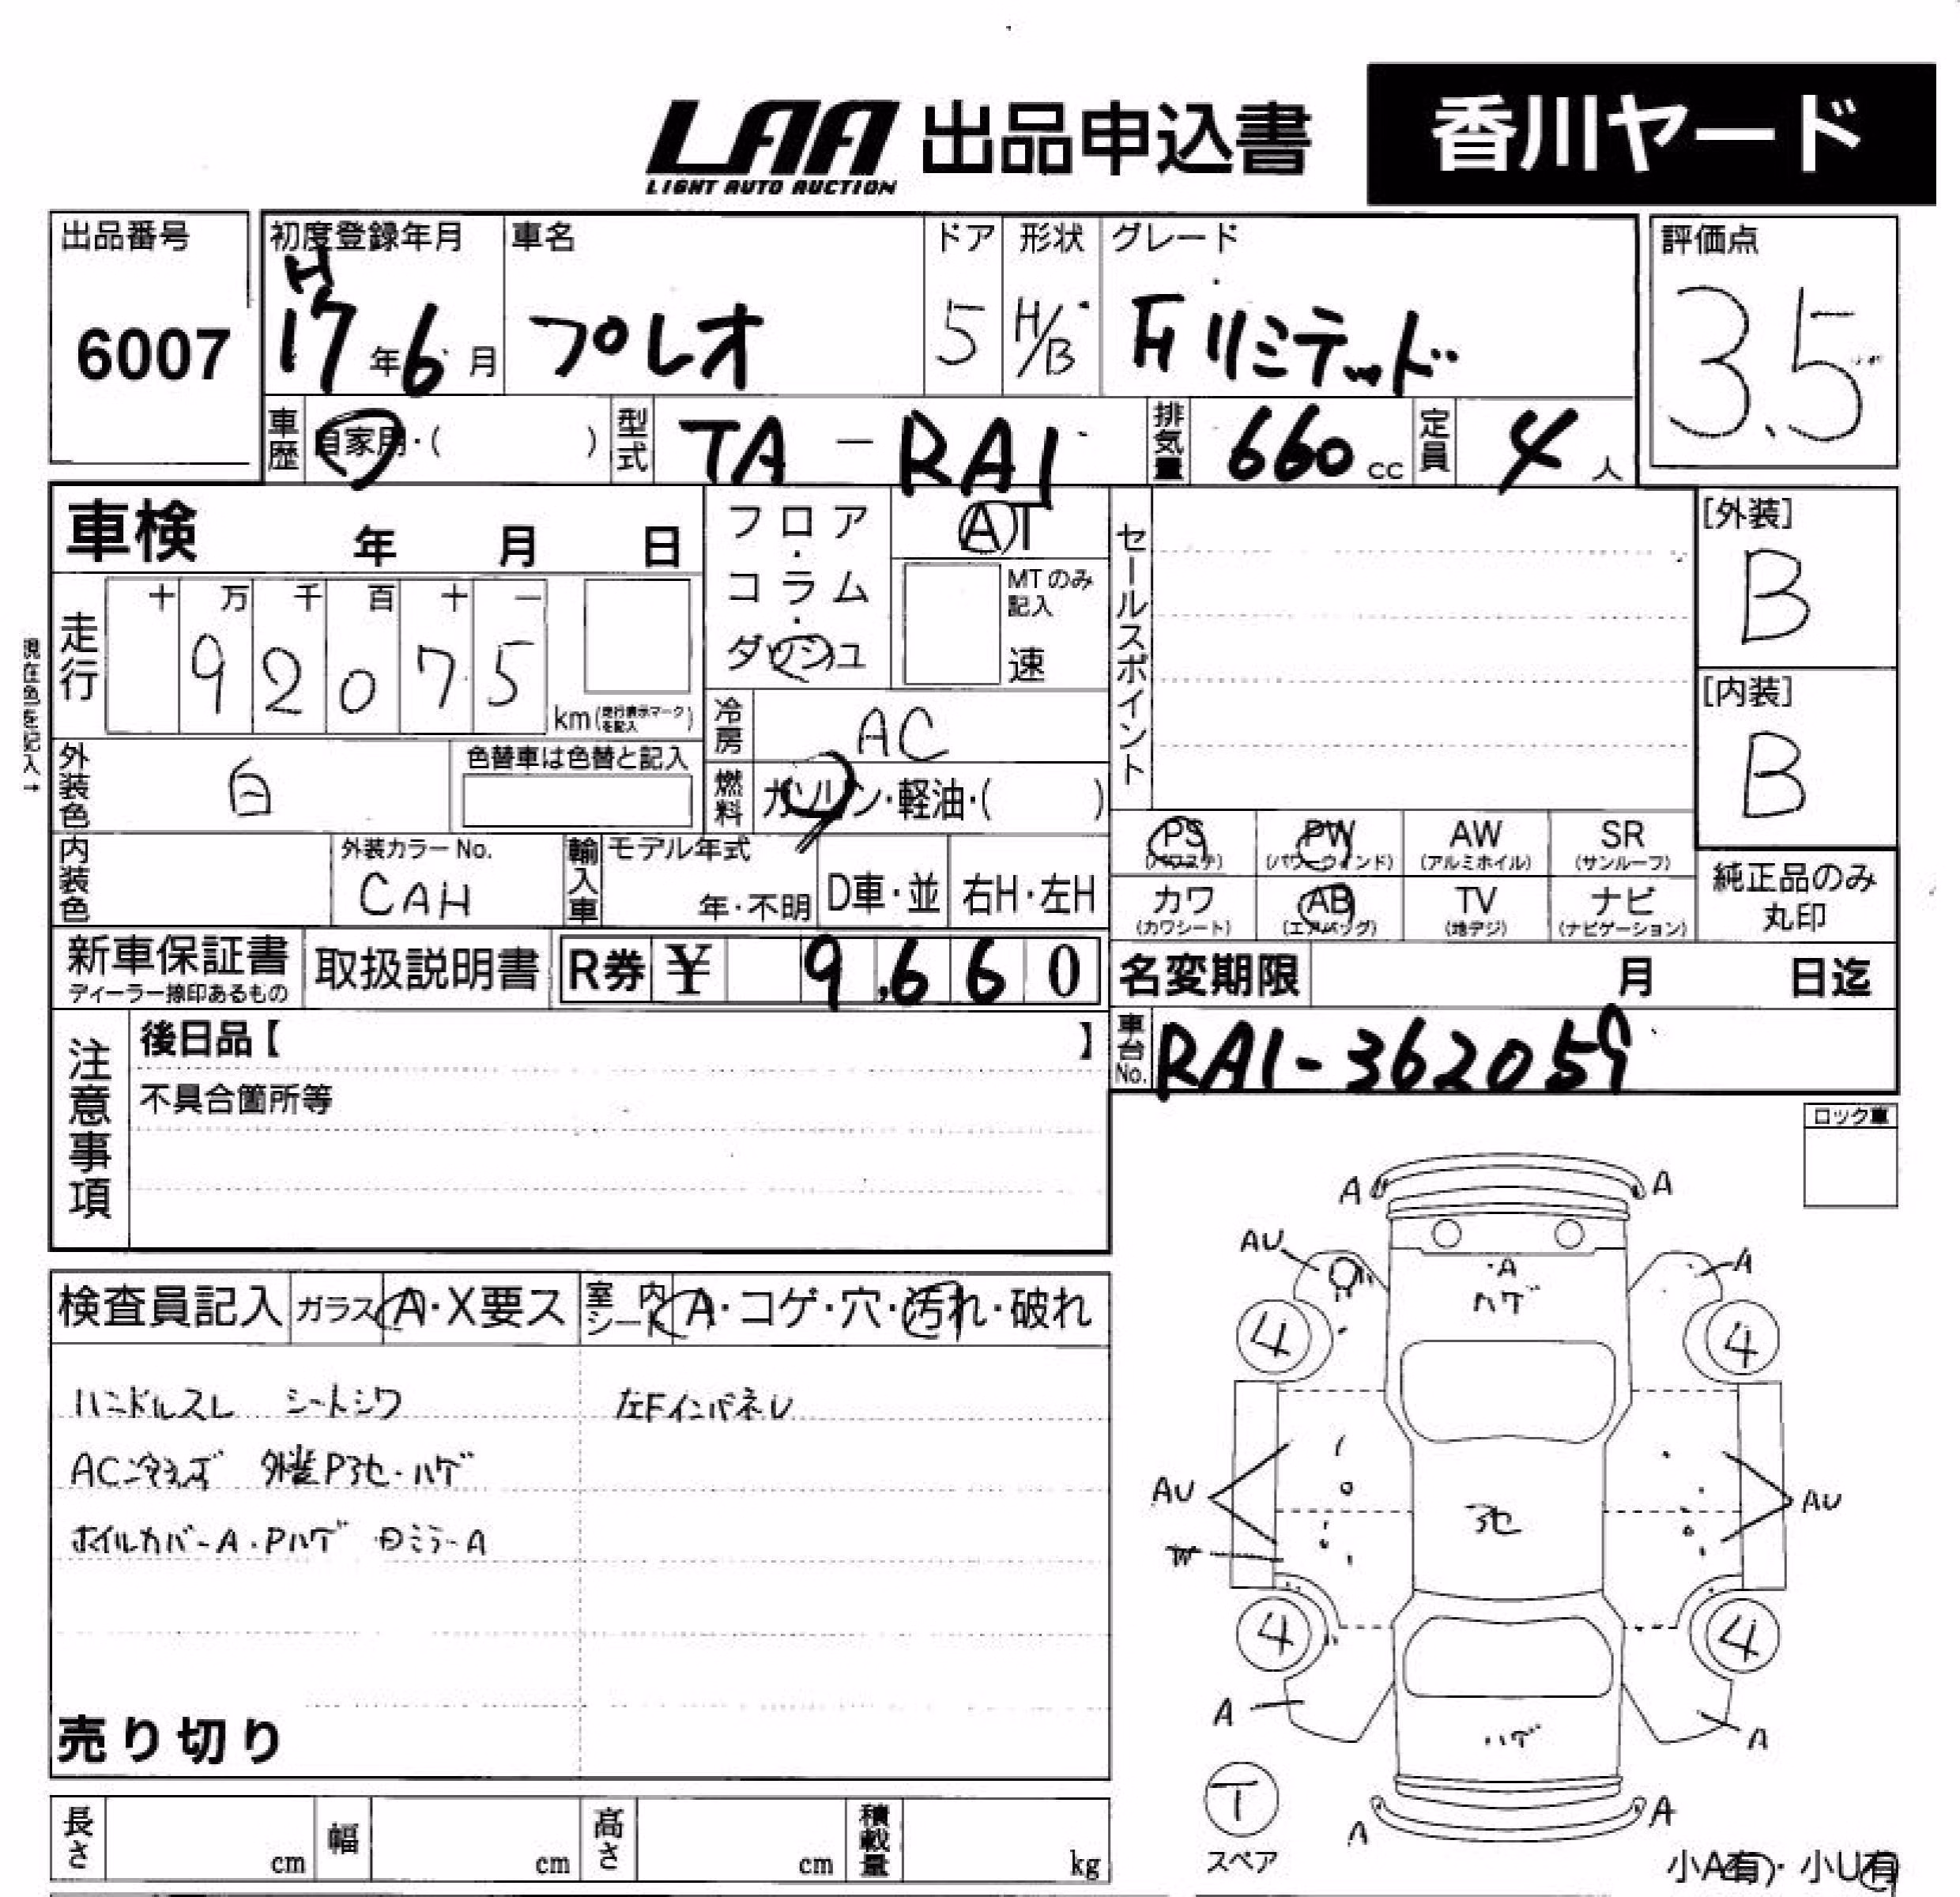 LAA 出品申込書 香川ヤード
LIGHT AUTO AUCTION
出品番号 初度登録年月 車名 ドア 形状 グレード 評価点
6007 H17年6月 プレオ 5 H/B Fリミテッド 3.5
車歴 自家用・( ) 型式 TA-RA1 排気量 660cc 定員 4人
車検 年 月 日
フロア・コラム・ダッシュ AT
MTのみ記入 速
セールスポイント
[外装]
B
[内装]
B
現在色を記入→
走行 十 万 千 百 十 一
9 2 0 7 5 km(走行表示マークを記入)
冷房 AC
外装色 白 色替車は色替と記入
燃料 ガソリン・軽油・( )
内装色 外装カラーNo. CAH
輸入車 モデル年式 年・不明 D車・並 右H・左H
PS (パワステ) PW (パワーウィンド) AW (アルミホイル) SR (サンルーフ)
カワ (カワシート) AB (エアバッグ) TV (地デジ) ナビ (ナビゲーション)
純正品のみ丸印
新車保証書 ディーラー捺印あるもの 取扱説明書 R券 ¥ 9,660
名変期限 月 日迄
車台No. RA1-362059
注意事項 後日品【 】
不具合箇所等
ロック車
検査員記入 ガラス A・X要ス 室内シート A・コゲ・穴・汚れ・破れ
ハンドルスレ シートシワ 左FインパネU
AC冷えず 外装P3池・ハゲ
ホイルカバーA・Pハゲ ミラーA
売り切り
A A
AU A
・A
ハゲ
4 4
AU AU
W
4 4
A A
ハゲ
T
スペア
A A
小A有・小U有
長さ cm 幅 cm 高さ cm 積載量 kg